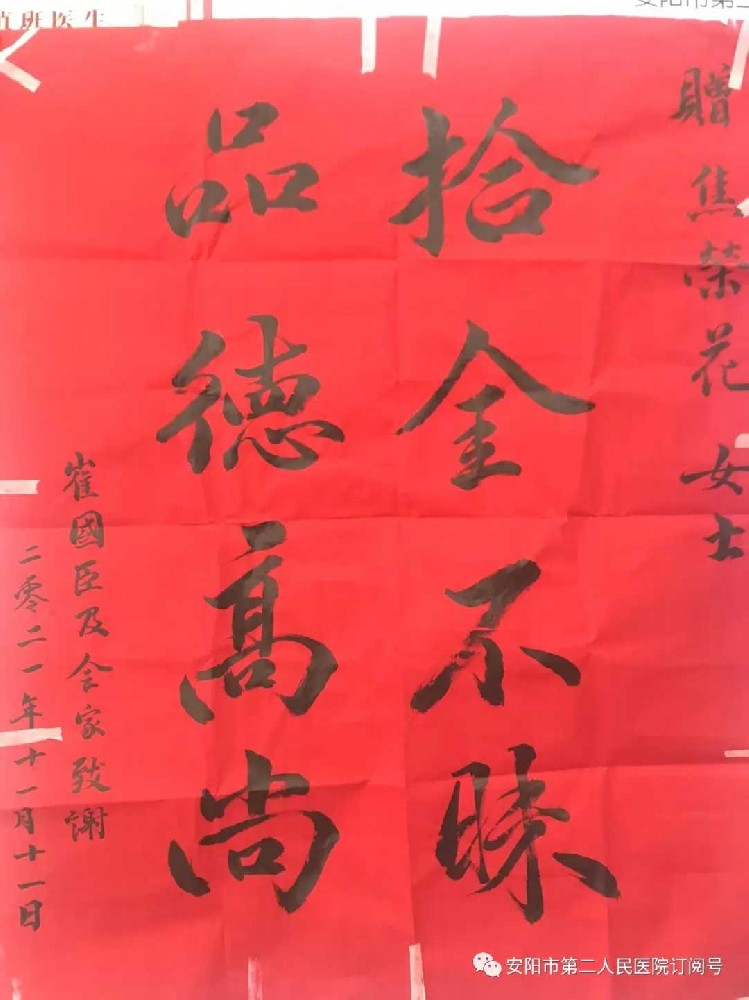 值班医生
安阳市第二
贈焦榮花女士
拾金不昧
品德髙尚
崔國臣及全家致謝
二零二一年十一月十一日
安阳市第二人民医院订阅号